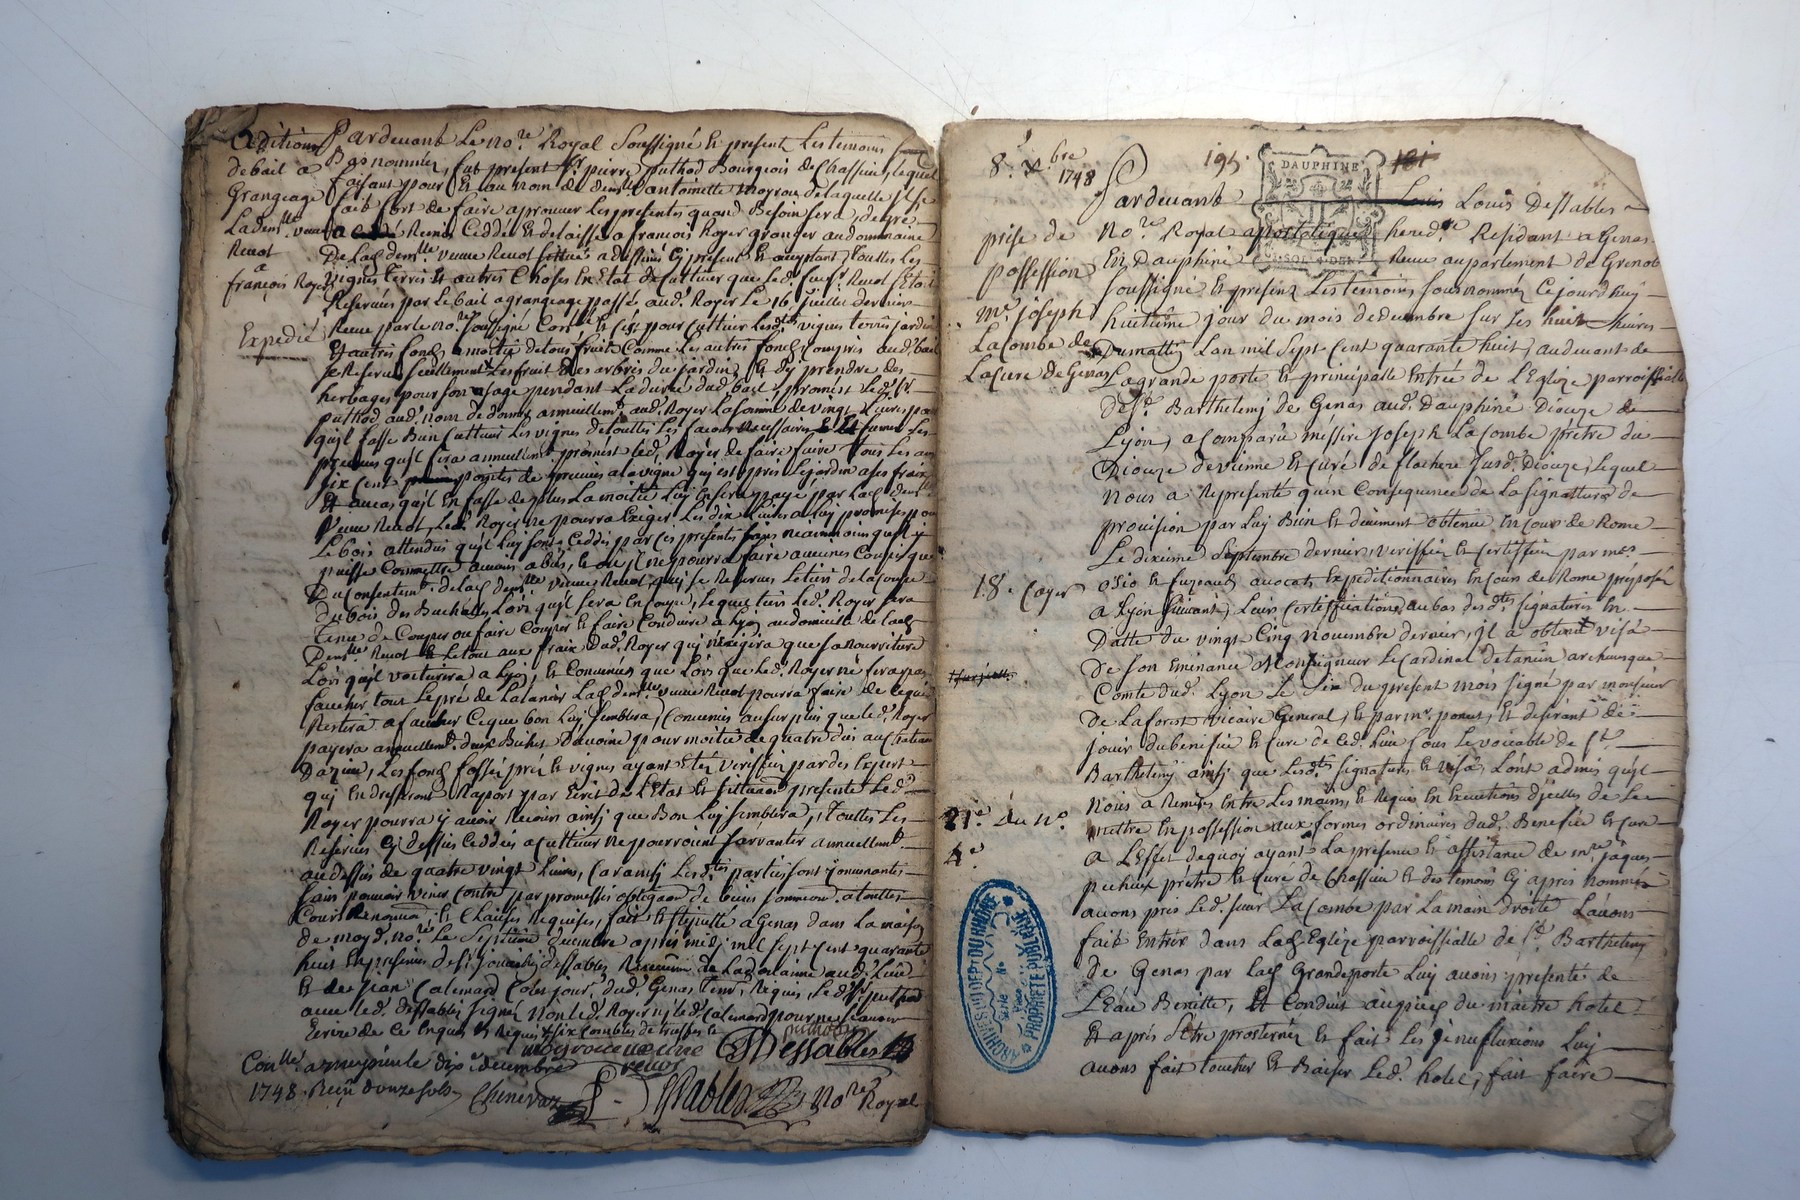 Aditions
de bail a
Grangeage
La dem.lle veuve
Revot
a
françois Royer
Expedié
Pardevant Le no.re Royal Soussigné Et present Les temoins
Bas nommés, fut present S.r pierre puthod Bourgeois de Chassieu, Lequel
faisant pour Et au nom de dem.lle antoinette moyroux de laquelle il se
fait fort de faire aprouver Les presentes quand Besoin sera, de gré
a Remis Cedde Et delaissé a françois Royer granger au domaine
De lad. dem.lle veuve Revot Scitué a dessine Cy present Et aceptant, Touttes Les
vignes terres Et autres Choses En Etat de Cultiver que led. Revot S'Etoit
Reservées par Le bail a grangeage passé aud. Royer Le 16 juillet dernier
Receu par le no.re soussigné Et C'est pour Cultiver Lesd.tes vignes terres jardin
Et autres fonds a moitié de tous fruits Comme Les autres fonds Compris aud. bail
se Reserve seullement Les fruits des arbres du jardin, Et d'y prendre des
herbages pour son usage pendant La durée dud. bail, promest Led. S.r
puthod aud. nom de donner annuellem.t aud. Royer La somme de vingt Livres pour
qu'il fasse Bien Cultiver Les vignes de touttes Les facons necessaires
qu'il fera annuellem.t promest Led. Royer de faire faire Tous Les ans
six Cent pointes de preuins a la vigne qui est près Le jardin a ses fraix
Et au cas qu'il En fasse de plus La moitié Luy En sera payé par Lad. dem.lle
veuve Revot, Led. Royer ne pourra Exiger Les dix Livres a Luy promises pour
Le bois attendu qu'il Luy sont Ceddés par Ces presentes sans neanmoins qu'il y
puisse Commettre aucuns abus, Et ou il ne pourra faire aucunes Coupes que
Du Consentem.t de lad. dem.lle veuve Revot qui se Reserve Le tiers de la Coupe
du bois des Buchalles Lors qu'il sera En Coupe, Lequel tiers Led. Royer sera
Tenu de Couper ou faire Couper Et faire Conduire a Lyon au domicile de lad.
Dem.lle Revot Et Le tout aux fraix dud. Royer qui n'Exigera que sa nourriture
Lors qu'il voiturera a Lyon, Et Convenus que Lors que Led. Royer ne fera pas
faucher tout Le pré de La Lad. dem.lle veuve Revot pourra faire de Ce qui
Restera a faucher Ce que bon Luy semblera, Convenus au surplus que Led. Royer
payera annuellem.t deux Bichets d'avoine pour moitié de quatre dus au Chateau
D'azieu, Les fonds fossés prés Et vignes ayant Etez verifiés par des Expert
qui En dresseront Raport par Ecrit de L'Etat Et scituation presente Led.
Royer pourra y avoir Recours ainsi que Bon Luy semblera, Touttes Les
Reserves Cy dessus Ceddées a Cultiver ne pourroient s'arranter annuellem.t
au dessus de quatre vingt Livres, Car ainsi Lesd.tes parties sont Convenantes
sans pouvoir venir Contre par promesses obligaon de biens soumaon a touttes
Cours Renonciaon, Et Clauses Requises, fait Et stipullé a Genas dans La maison
de moyd. no.re Le septième decembre après midi mil sept cent quarante
huit En presence de S.r Dessables de La Doüanne aud. Lieu
Et de jean Calemard Cosdu jour dud. Genas tem. Requis, Led. S.r puthod
avec led. Dessables signés Non Led. Royer ny led. Calemard pour ne sçavoir
Ecrire de Ce Enquis Et Requis
puthod
Dessables
veuve Revot
Con.llé a meyzieu le dix decembre
1748. Reçu douze sols
Chenevaz
Dessables No.re Royal
8.e X.bre
1748
195.
181
DAUPHINE
SOL 4 DEN
Pardevant Louis Louis Dessables
No.re Royal apostolique hered.re Residant a Genas
En Dauphiné Receu au parlement de Grenob
Soussigné Et presens Les temoins sous nommés Ce jourd'huy
huitième jour du mois de decembre sur Les huit heures
Du mattin L'an mil sept Cent quarante huit, au devant de
La grande porte Et principalle Entrée de L'Eglize parroissialle
De S.t Barthelemy de Genas aud. Dauphiné Dioceze de
Lyon, a Comparû messire Joseph LaCombe prêtre du
Dioceze de vienne Et Curé de flachere susd. Dioceze, Lequel
nous a Representé qu'en Consequence de La signature de
provision par Luy Bien Et düement obtenue En Cour de Rome
Le dixième septembre dernier, veriffiée Et Certiffiée par mes.
osio Et fuzeaud avocats Expeditionnaires En Cour de Rome préposés
a Lyon suivant Leurs Certiffications au bas desd.tes signatures En
Datte du vingt Cinq novembre dernier, jl a obtenu visa
De son Eminance Monseigneur Le Cardinal de tancin archevêque
Comte dud. Lyon Le six du present mois signé par monsieur
De Laforest vicaire General, Et par m.r ponut, Et desirant de
jouir du benefice Et Cure de Ced. Lieu sous Le vocable de S.t
Barthelemy ainsi que Lesd.tes signatures Et visa L'ont admis qu'jl
nous a Remises Entre Les mains, Et Requis En Execution d'jcelles de Le
mettre En possession aux formes ordinaires dud. Benefice Et Cure
a L'Effet de quoy ayant La presence Et assistance de m.re jaques
pucheux prêtre Et Curé de Chassieu Et des temoins Cy après nommés
avons pris Led. sieur LaCombe par La main droite L'avons
fait Entrer dans Lad. Eglize parroissialle de S.t Barthelemy
de Genas par Lad. Grande porte Luy avons presenté de
L'Eau Benitte, Et Conduit au pied du maitre hotel
Et après s'être prosterné Et fait Les genufluxions Luy
avons fait toucher Et Baiser Led. hotel, fait faire
prise de
possession
m.re joseph
LaCombe de
La Cure de Genas
18.e Cayer
21.e du n.o
4.e
ARCHIVES DU DEPT DU RHÔNE
Série N°
PROPRIÉTÉ PUBLIQUE